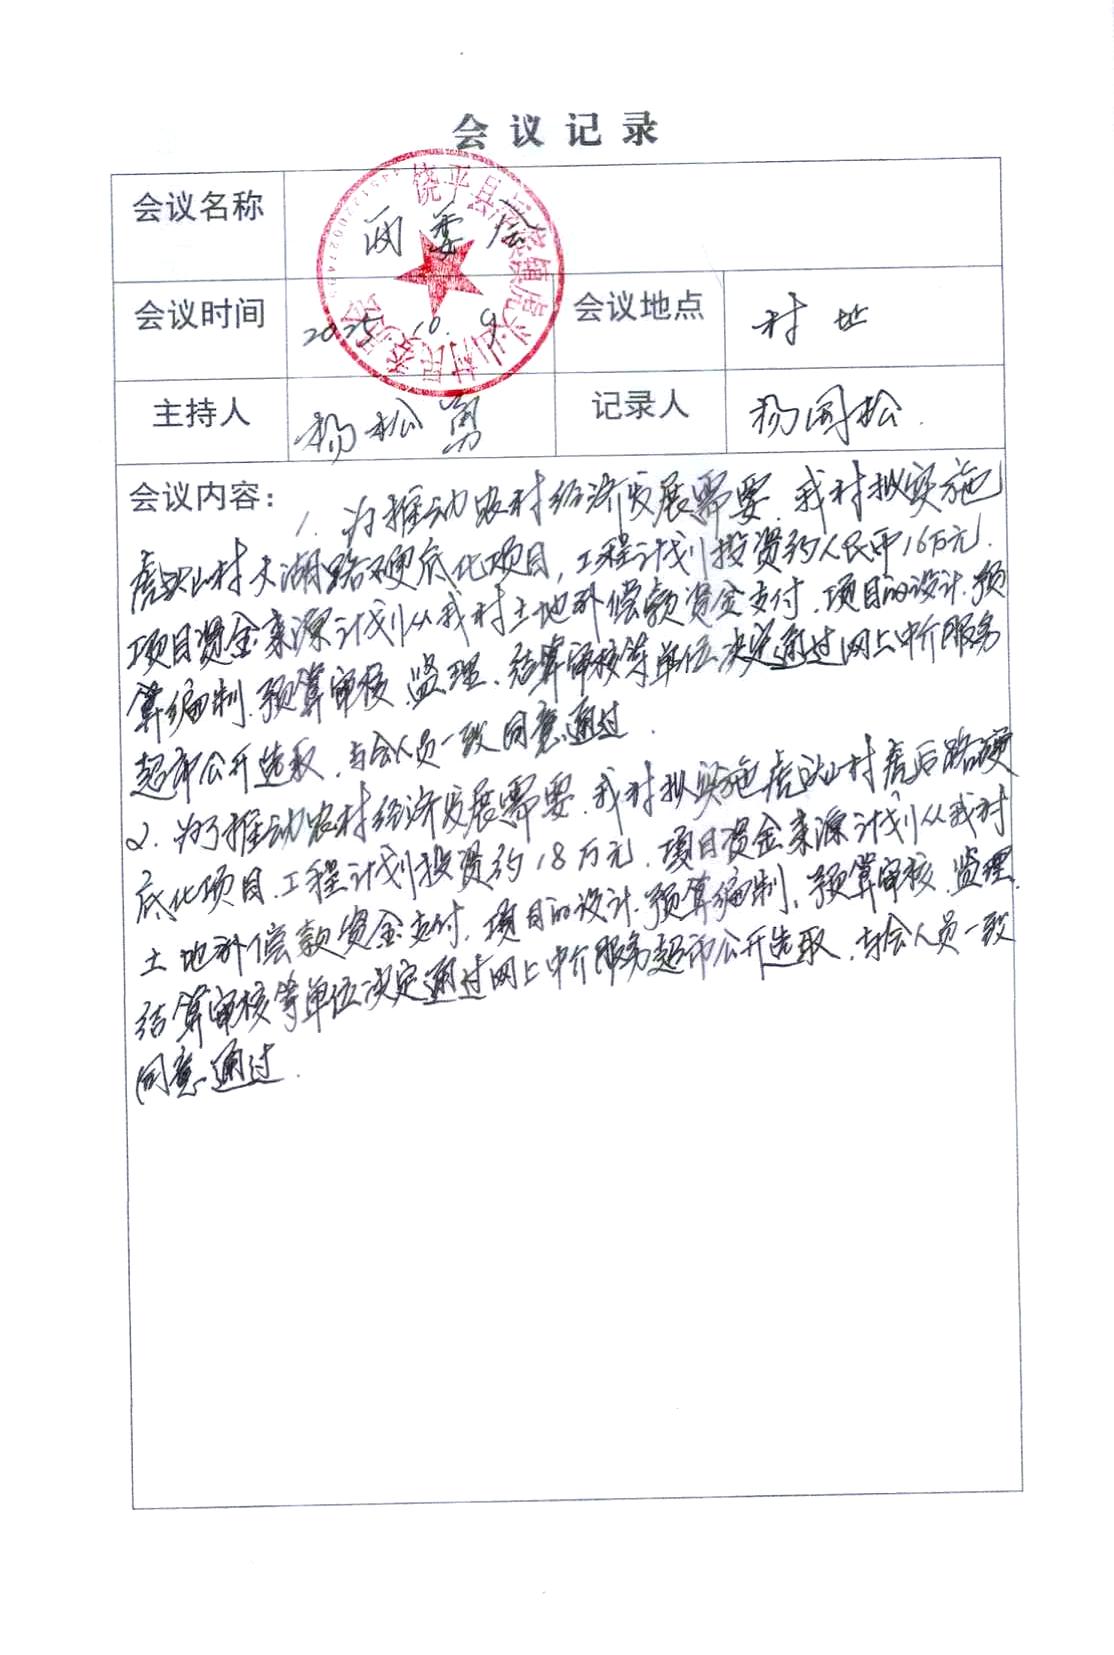 会议记录
会议名称 两委会
会议时间 2025.10.9 会议地点 村址
主持人 杨松勇 记录人 杨国松.
会议内容: 1. 为推动农村经济发展需要.我村拟实施
虎头山村大湖路硬底化项目,工程计划投资约人民币16万元.
项目资金来源计划从我村土地补偿款资金支付.项目的设计.预
算编制.预算审核.监理.结算审核等单位决定通过网上中介服务
超市公开选取.与会人员一致同意通过.
2. 为了推动农村经济发展需要.我村拟实施虎头山村虎后路硬
底化项目.工程计划投资约18万元.项目资金来源计划从我村
土地补偿款资金支付.项目的设计.预算编制.预算审核.监理.
结算审核等单位决定通过网上中介服务超市公开选取.与会人员一致
同意通过.
饶平县 镇虎头山村民委员会